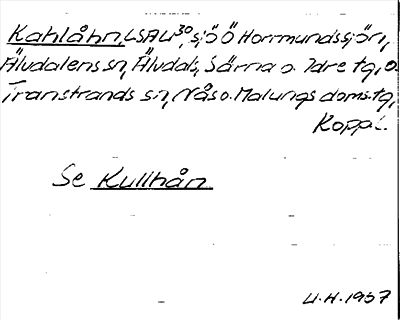 Kahlåhn, LSAU 30, sjö Ö Horrmundssjön,
Älvdalens sn, Älvdals, Särna o. Idre tg, o.
Transtrands sn, Nås o. Malungs doms. tg,
Kopp. l.
Se Kullhån
U.H. 1957